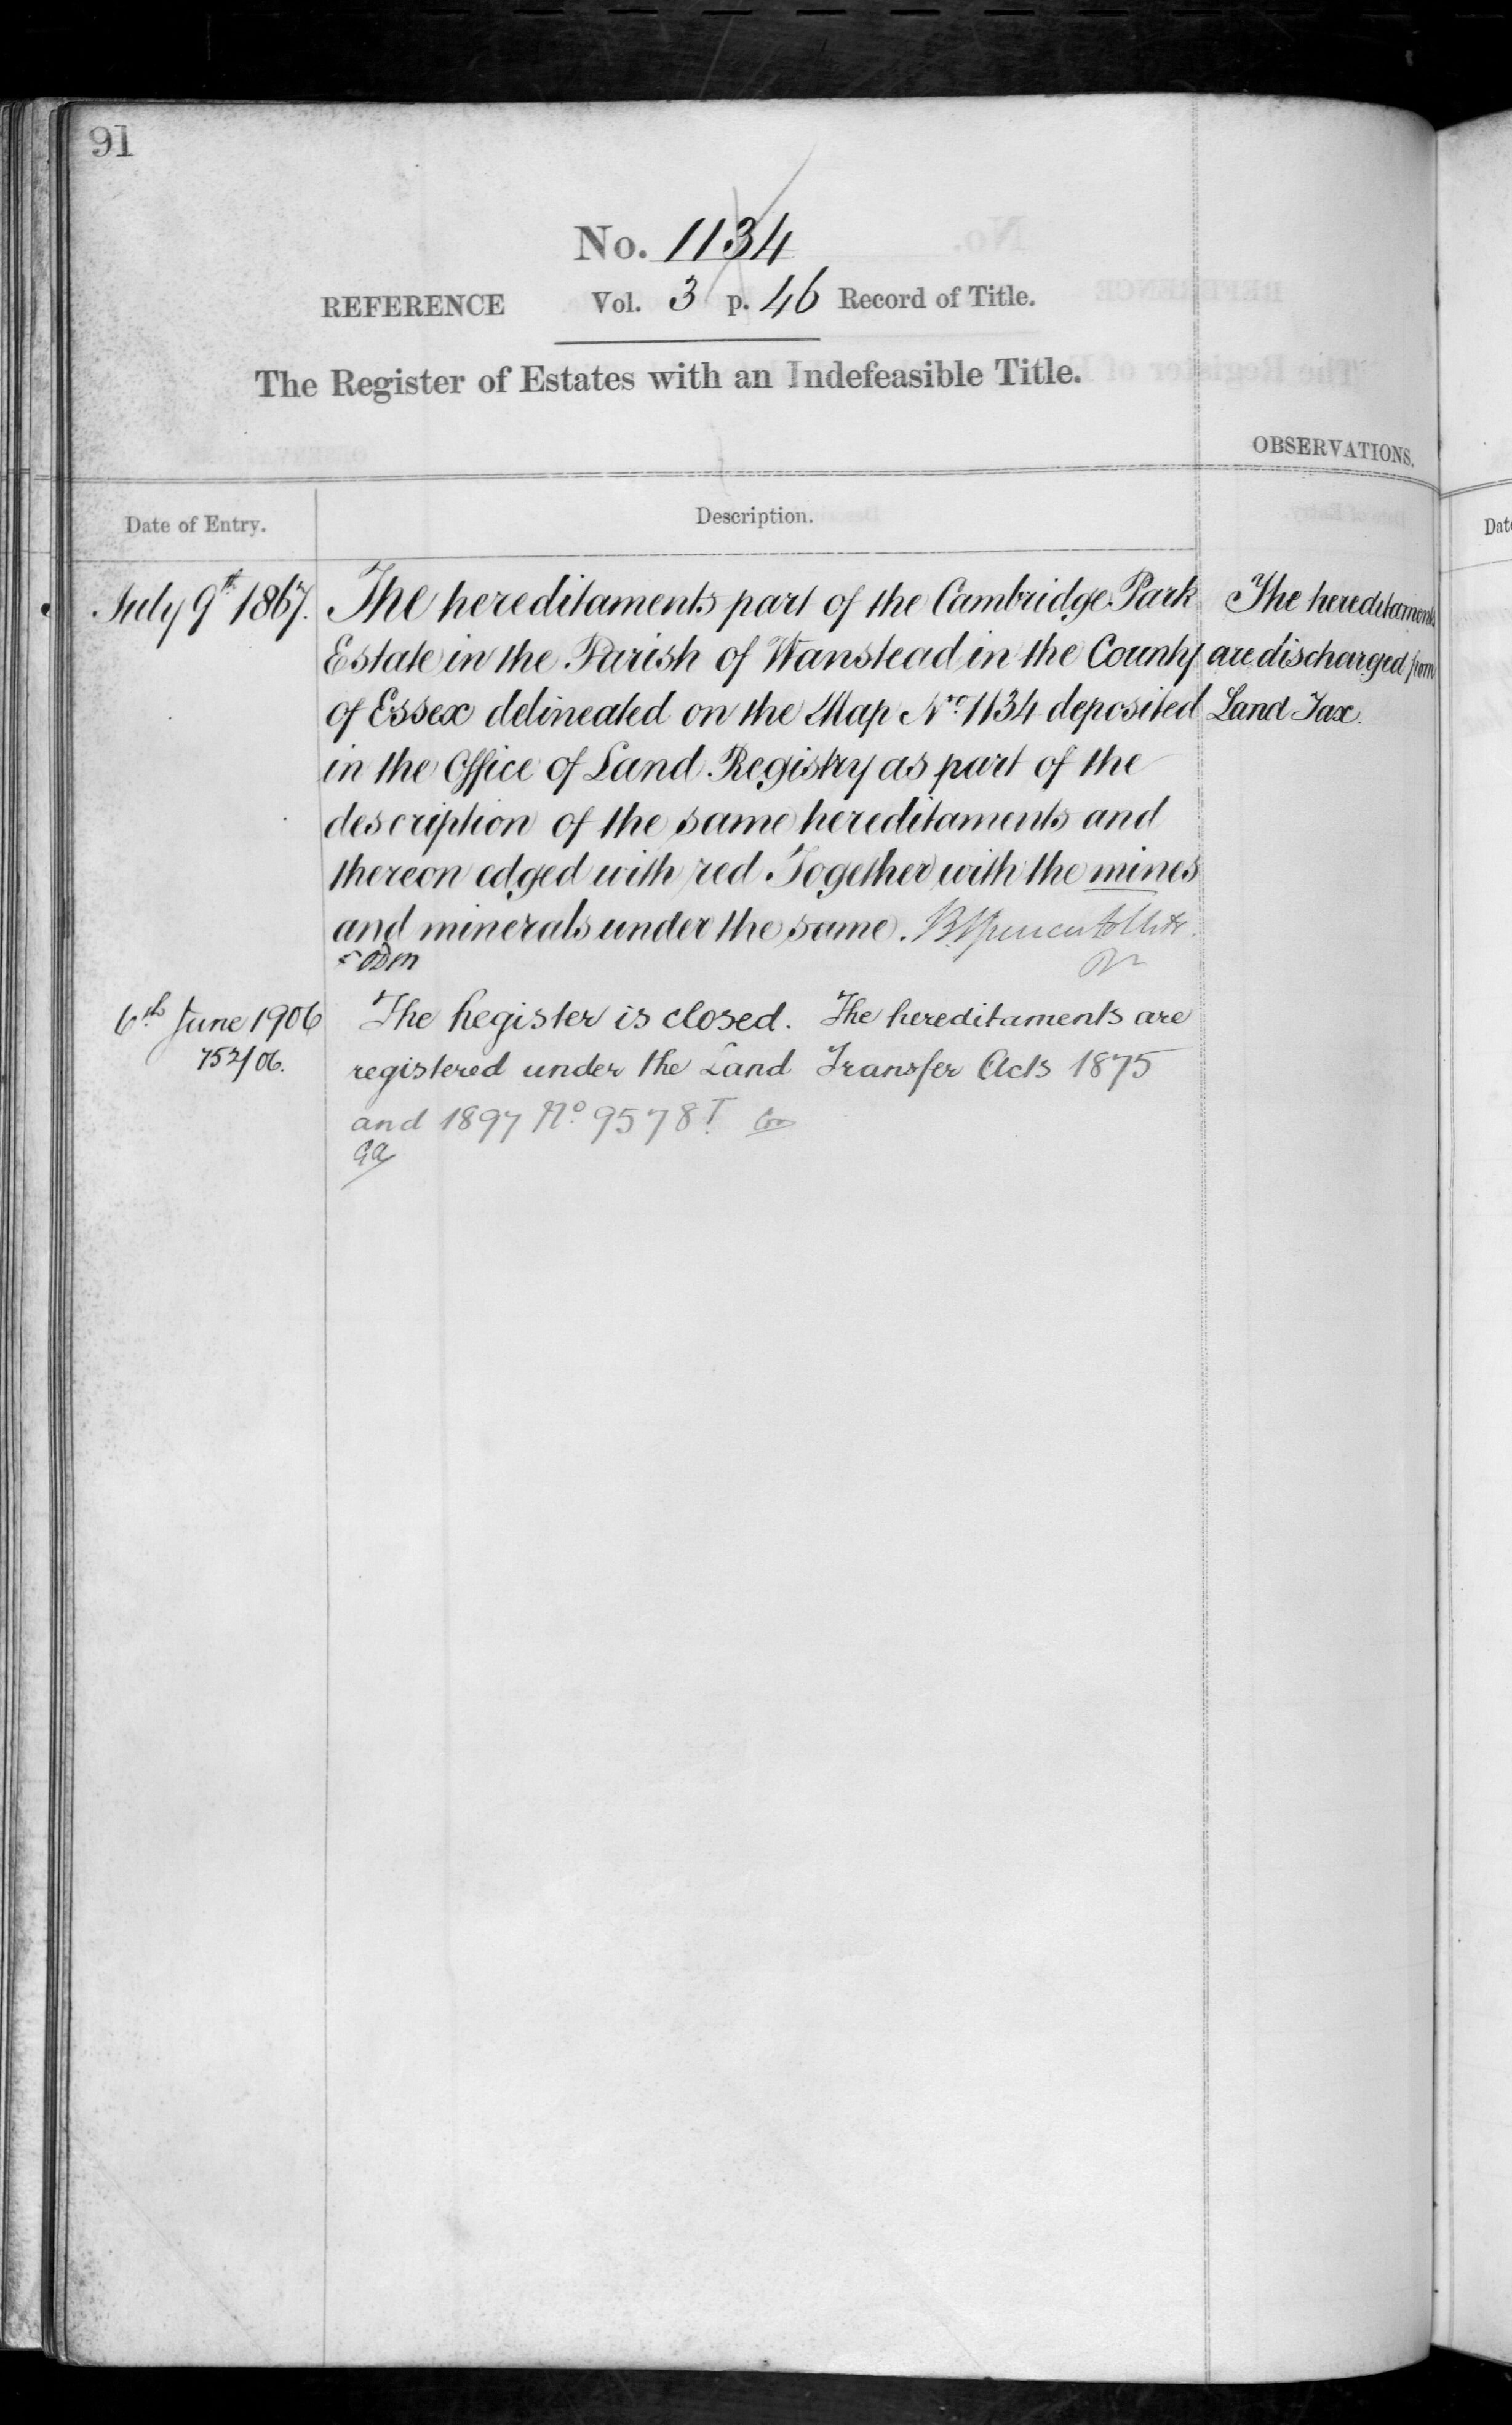 91
No. 1134
REFERENCE Vol. 3 p. 46 Record of Title.
The Register of Estates with an Indefeasible Title.
OBSERVATIONS.
Date of Entry.
Description.
July 9th 1867.
The hereditaments part of the Cambridge Park
Estate in the Parish of Wanstead in the County
of Essex delineated on the Map No. 1134 deposited
in the Office of Land Registry as part of the
description of the same hereditaments and
thereon edged with red Together with the mines
and minerals under the same.
The hereditaments
are discharged from
Land Tax.
6th June 1906
752/06.
The Register is closed. The hereditaments are
registered under the Land Transfer Acts 1875
and 1897 No. 9578T.
GA
Date